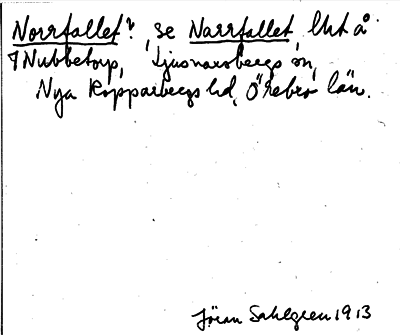 Norrfallet? se Narrfallet, lht å
Nubbetorp, Ljusnarsbergs sn,
Nya Kopparbergs hd, Örebro län.
Jöran Sahlgren 1913